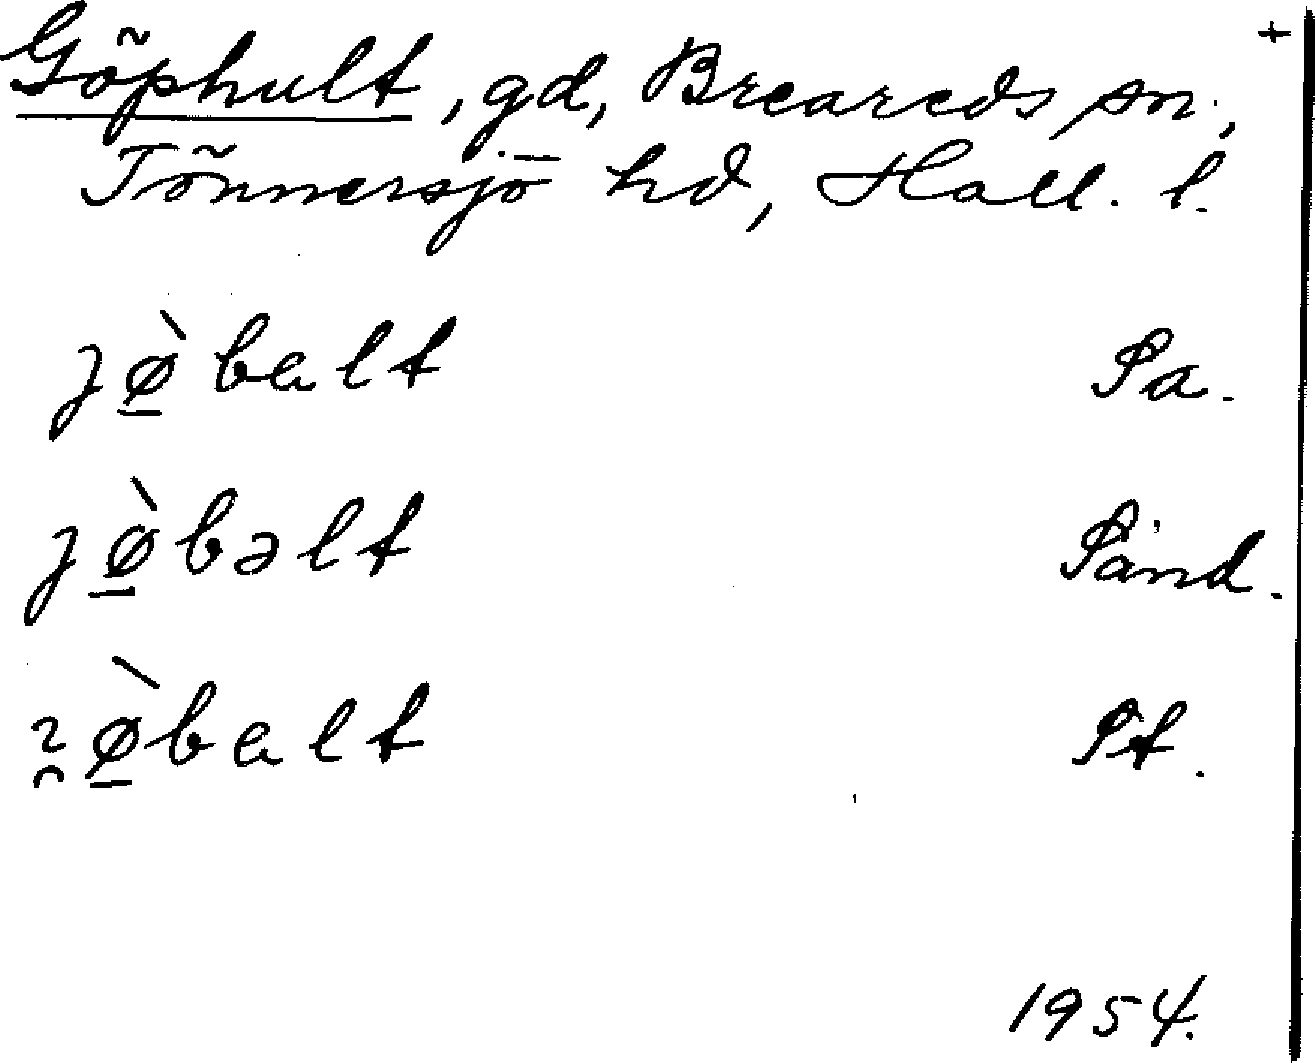 Göphult, gd, Breareds sn., +
Tönnersjö hd, Hall. l.
jø̲̀balt Pa.
jø̲̀bəlt Pånd.
ø̲̀balt Pt.
1954.